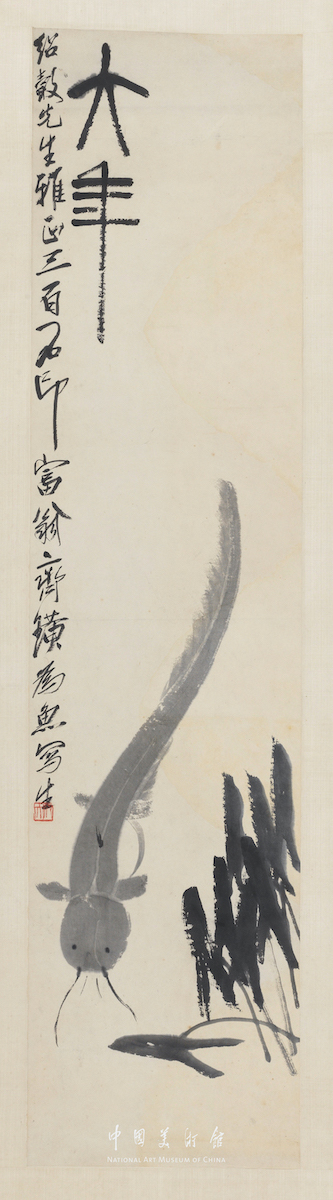 大年
紹穀先生雅正三百石印富翁齊璜為魚寫生
中國美術館
NATIONAL ART MUSEUM OF CHINA